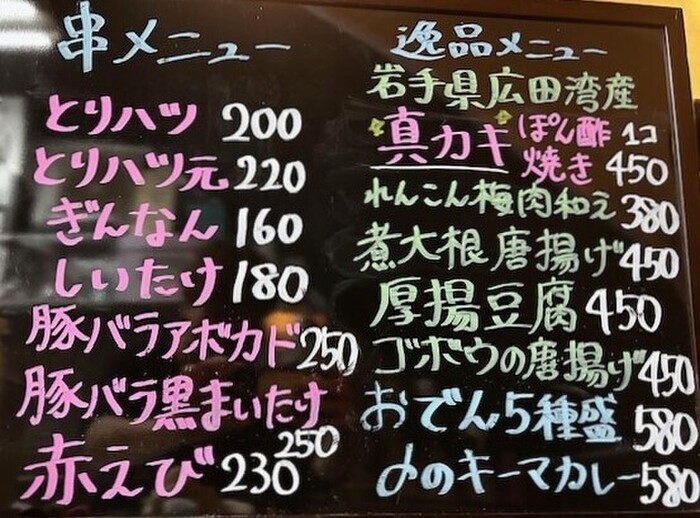 串メニュー
とりハツ 200
とりハツ元 220
ぎんなん 160
しいたけ 180
豚バラアボカド 250
豚バラ黒まいたけ 250
赤えび 230
逸品メニュー
岩手県広田湾産
真カキ ぽん酢 焼き 1コ 450
れんこん梅肉和え 380
煮大根唐揚げ 450
厚揚豆腐 450
ゴボウの唐揚げ 450
おでん5種盛 580
〆のキーマカレー 580